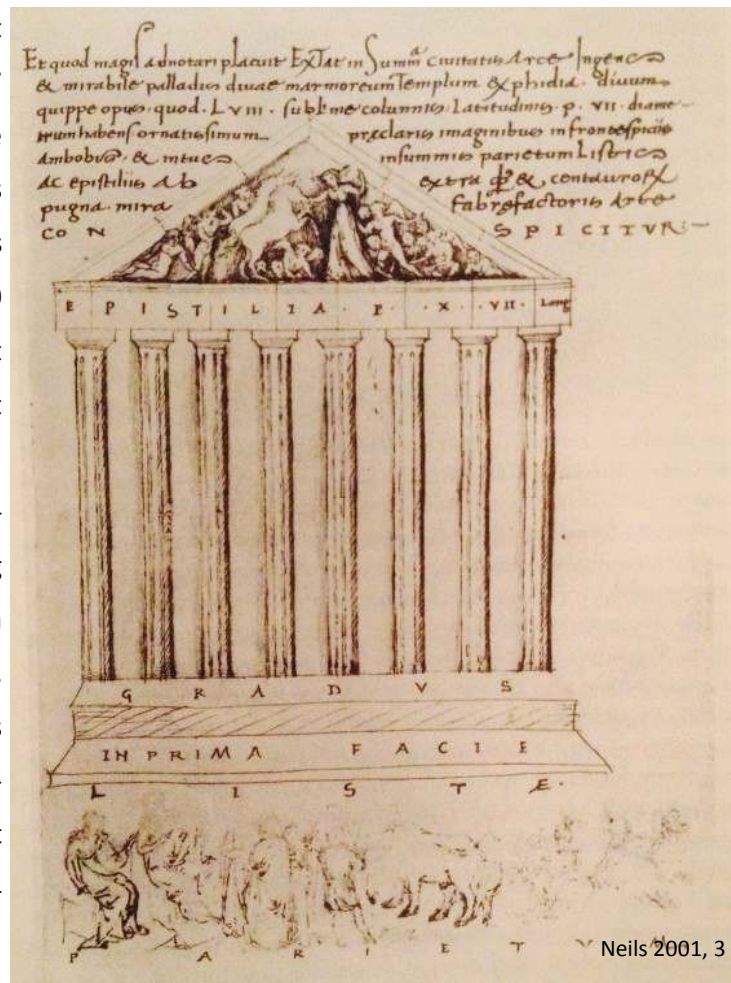 Et quod magis adnotari placuit ExTat in Summa civitatis Arce Ingens
& mirabile palladis divae marmoreum Templum & phidia. divum
quippe opus. quod. LVIII. sublime columnis. Latitudinis. p. VII. diame-
trum habens ornatissimum praeclaris imaginibus in frontespiciis
Ambobus. & intus in summis parietum Listis
Ac epistiliis Ab extra & centauror
pugna. mira fabrefactoris Arte
CON SPICITVR
EPISTILIA. P. X. VII. Long
GRADVS
IN PRIMA FACIE
LISTÆ.
PARIETVM
Neils 2001, 3